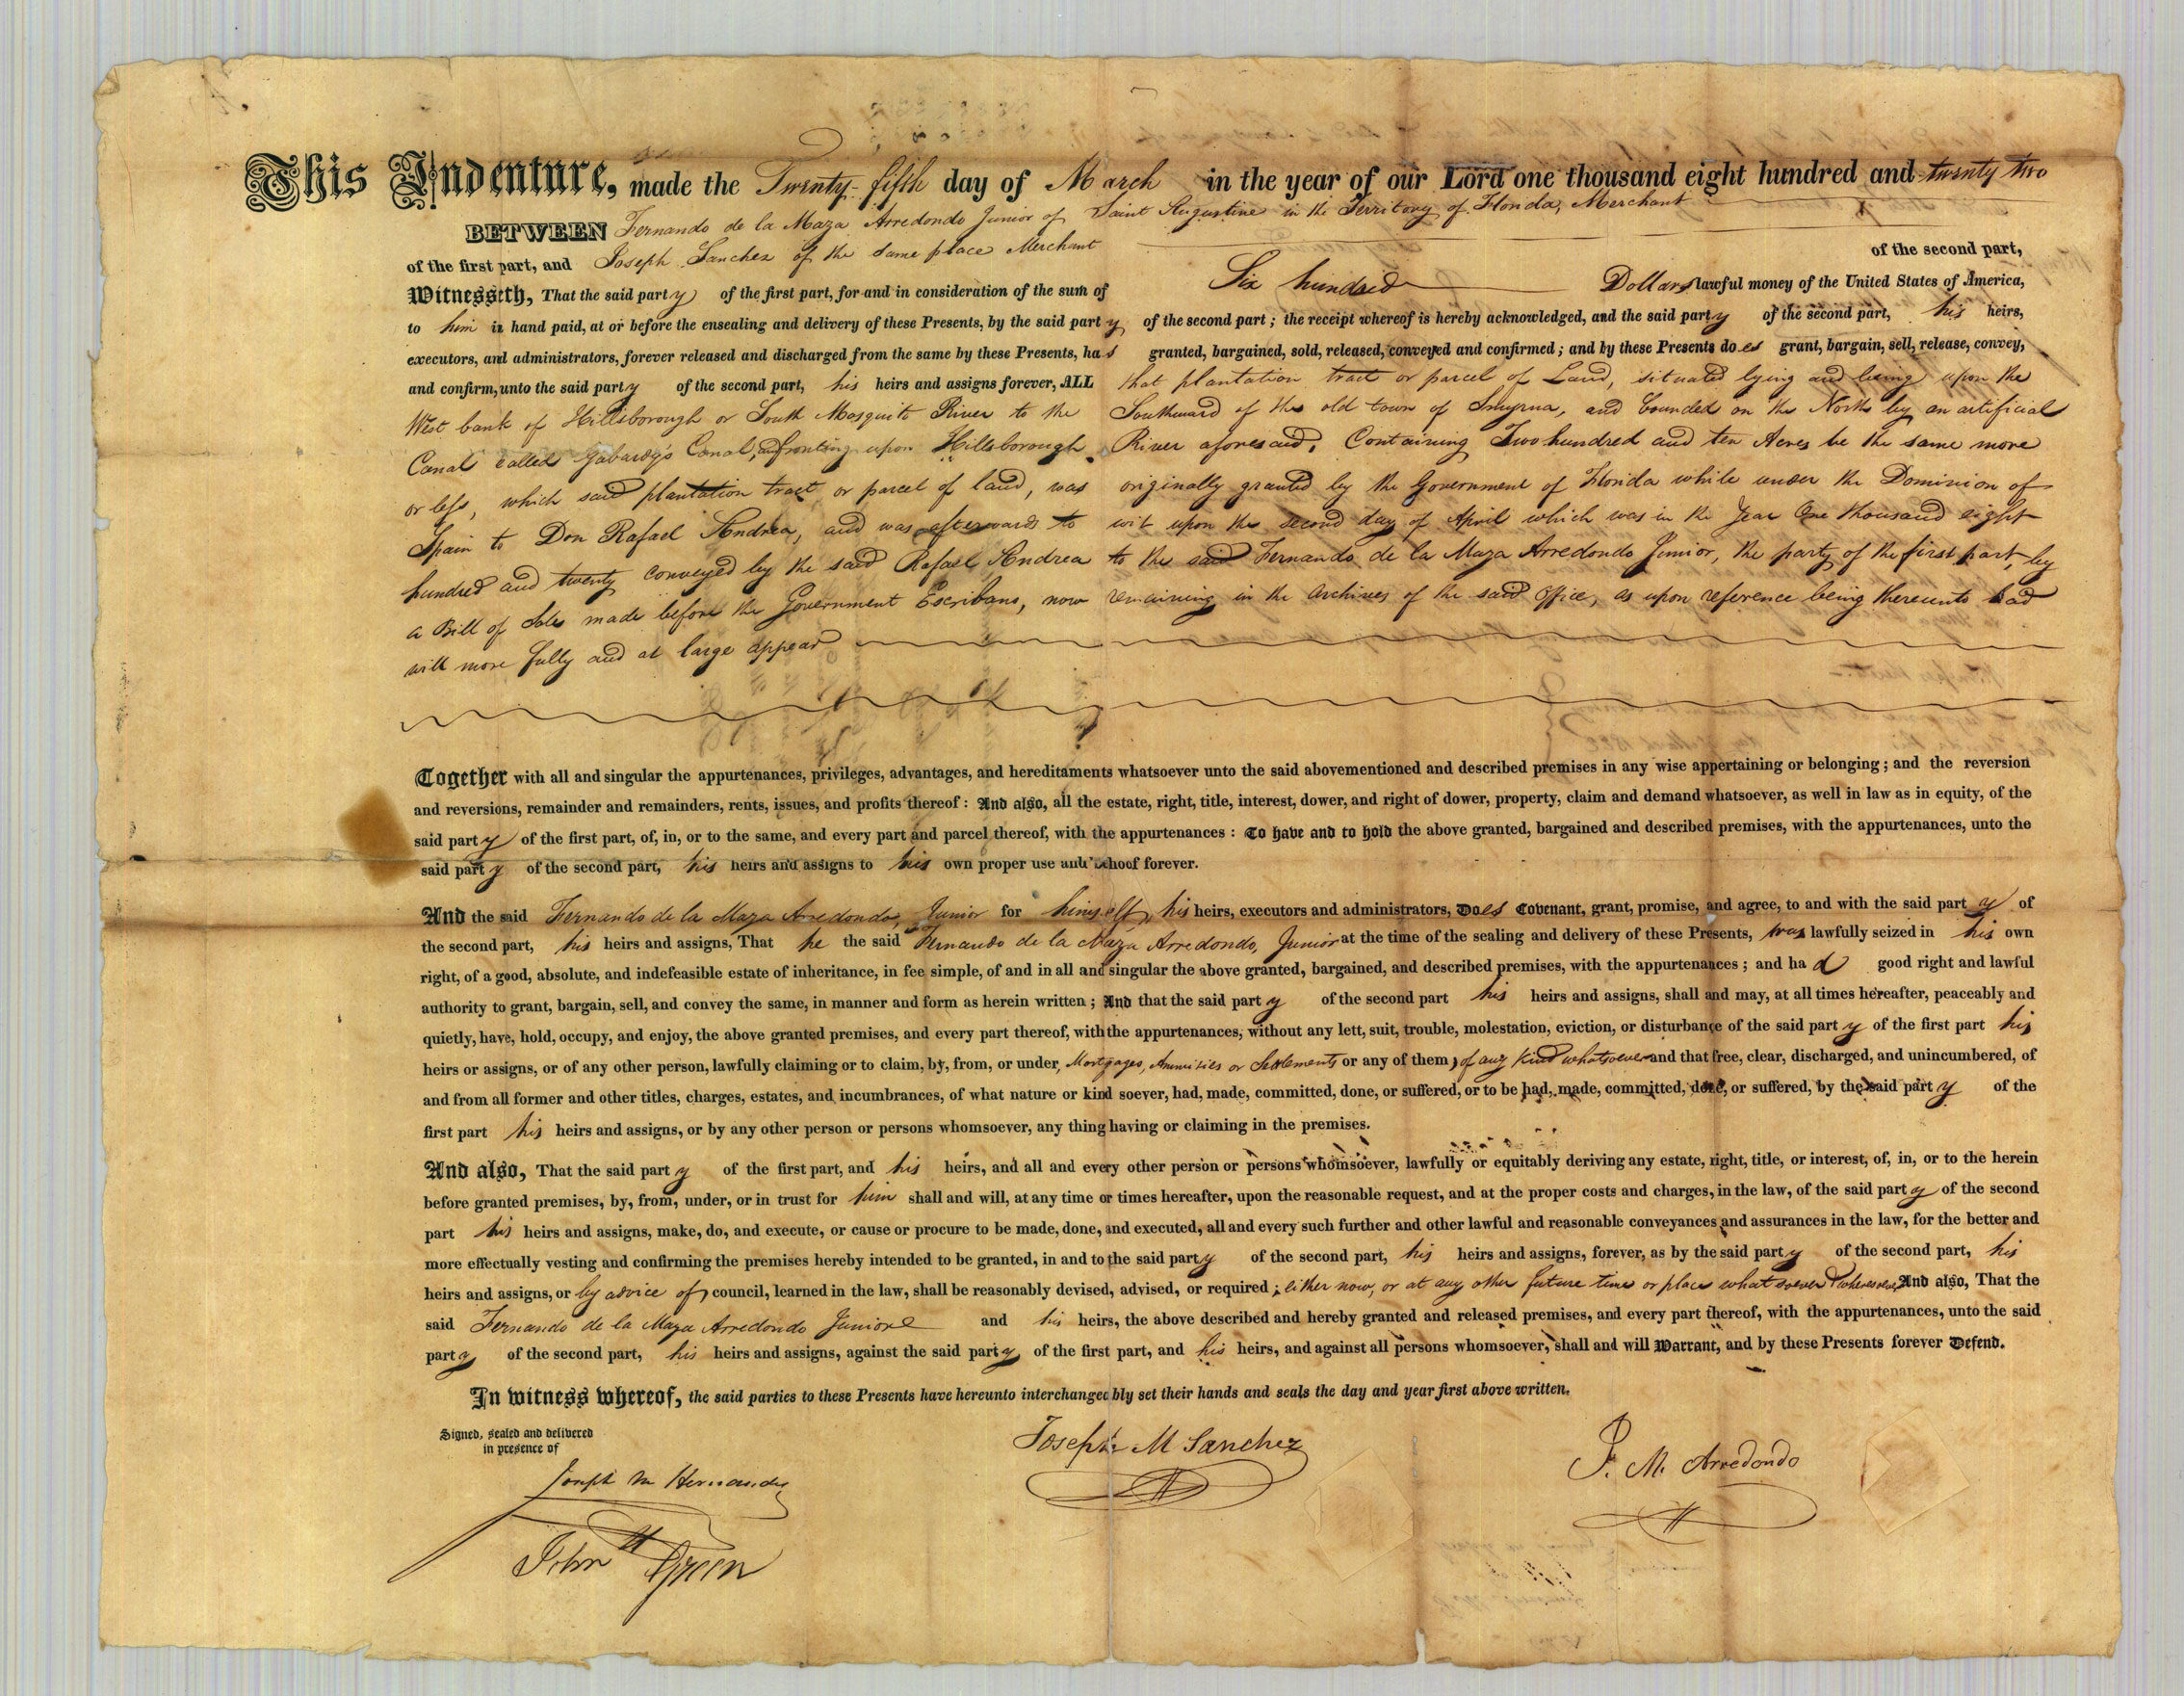 This Indenture, made the Twenty-fifth day of March in the year of our Lord one thousand eight hundred and twenty two
BETWEEN Fernando de la Maza Arredondo Junior of Saint Augustine in the Territory of Florida, Merchant
of the first part, and Joseph Sanchez of the same place Merchant of the second part,
Witnesseth, That the said party of the first part, for and in consideration of the sum of Six hundred Dollars lawful money of the United States of America,
to him in hand paid, at or before the ensealing and delivery of these Presents, by the said party of the second part; the receipt whereof is hereby acknowledged, and the said party of the second part, his heirs,
executors, and administrators, forever released and discharged from the same by these Presents, has granted, bargained, sold, released, conveyed and confirmed; and by these Presents does grant, bargain, sell, release, convey,
and confirm, unto the said party of the second part, his heirs and assigns forever, ALL that plantation tract or parcel of Land, situated lying and being upon the
West bank of Hillsborough or South Mosquito River to the Southward of the old town of Smyrna, and bounded on the North by an artificial
Canal called Gabardy's Canal, & fronting upon Hillsborough River aforesaid, Containing Two hundred and ten Acres be the same more
or less, which said plantation tract or parcel of land, was originally granted by the Government of Florida while under the Dominion of
Spain to Don Rafael Andrea, and was afterwards to wit upon the second day of April which was in the Year One thousand eight
hundred and twenty conveyed by the said Rafael Andrea to the said Fernando de la Maza Arredondo Junior, the party of the first part, by
a Bill of Sale made before the Government Escribano, now remaining in the Archives of the said Office, as upon reference being thereunto had
will more fully and at large appear
Together with all and singular the appurtenances, privileges, advantages, and hereditaments whatsoever unto the said abovementioned and described premises in any wise appertaining or belonging; and the reversion
and reversions, remainder and remainders, rents, issues, and profits thereof: And also, all the estate, right, title, interest, dower, and right of dower, property, claim and demand whatsoever, as well in law as in equity, of the
said party of the first part, of, in, or to the same, and every part and parcel thereof, with the appurtenances: To have and to hold the above granted, bargained and described premises, with the appurtenances, unto the
said party of the second part, his heirs and assigns to his own proper use and behoof forever.
And the said Fernando de la Maza Arredondo, Junior for himself, his heirs, executors and administrators, Does Covenant, grant, promise, and agree, to and with the said party of
the second part, his heirs and assigns, That he the said Fernando de la Maza Arredondo, Junior at the time of the sealing and delivery of these Presents, was lawfully seized in his own
right, of a good, absolute, and indefeasible estate of inheritance, in fee simple, of and in all and singular the above granted, bargained, and described premises, with the appurtenances; and had good right and lawful
authority to grant, bargain, sell, and convey the same, in manner and form as herein written; And that the said party of the second part his heirs and assigns, shall and may, at all times hereafter, peaceably and
quietly, have, hold, occupy, and enjoy, the above granted premises, and every part thereof, with the appurtenances, without any lett, suit, trouble, molestation, eviction, or disturbance of the said party of the first part his
heirs or assigns, or of any other person, lawfully claiming or to claim, by, from, or under, Mortgages, Annuities or Settlements or any of them, of any Kind whatsoever and that free, clear, discharged, and unincumbered, of
and from all former and other titles, charges, estates, and incumbrances, of what nature or kind soever, had, made, committed, done, or suffered, or to be had, made, committed, done, or suffered, by the said party of the
first part his heirs and assigns, or by any other person or persons whomsoever, any thing having or claiming in the premises.
And also, That the said party of the first part, and his heirs, and all and every other person or persons whomsoever, lawfully or equitably deriving any estate, right, title, or interest, of, in, or to the herein
before granted premises, by, from, under, or in trust for him shall and will, at any time or times hereafter, upon the reasonable request, and at the proper costs and charges, in the law, of the said party of the second
part his heirs and assigns, make, do, and execute, or cause or procure to be made, done, and executed, all and every such further and other lawful and reasonable conveyances and assurances in the law, for the better and
more effectually vesting and confirming the premises hereby intended to be granted, in and to the said party of the second part, his heirs and assigns, forever, as by the said party of the second part, his
heirs and assigns, or by advice of council, learned in the law, shall be reasonably devised, advised, or required; either now, or at any other future time or place whatsoever & wheresoever And also, That the
said Fernando de la Maza Arredondo Junior and his heirs, the above described and hereby granted and released premises, and every part thereof, with the appurtenances, unto the said
party of the second part, his heirs and assigns, against the said party of the first part, and his heirs, and against all persons whomsoever, shall and will Warrant, and by these Presents forever Defend.
In witness whereof, the said parties to these Presents have hereunto interchangeably set their hands and seals the day and year first above written.
Signed, sealed and delivered
in presence of
Joseph M Sanchez
F. M. Arredondo
Joseph M Hernandez
John Green